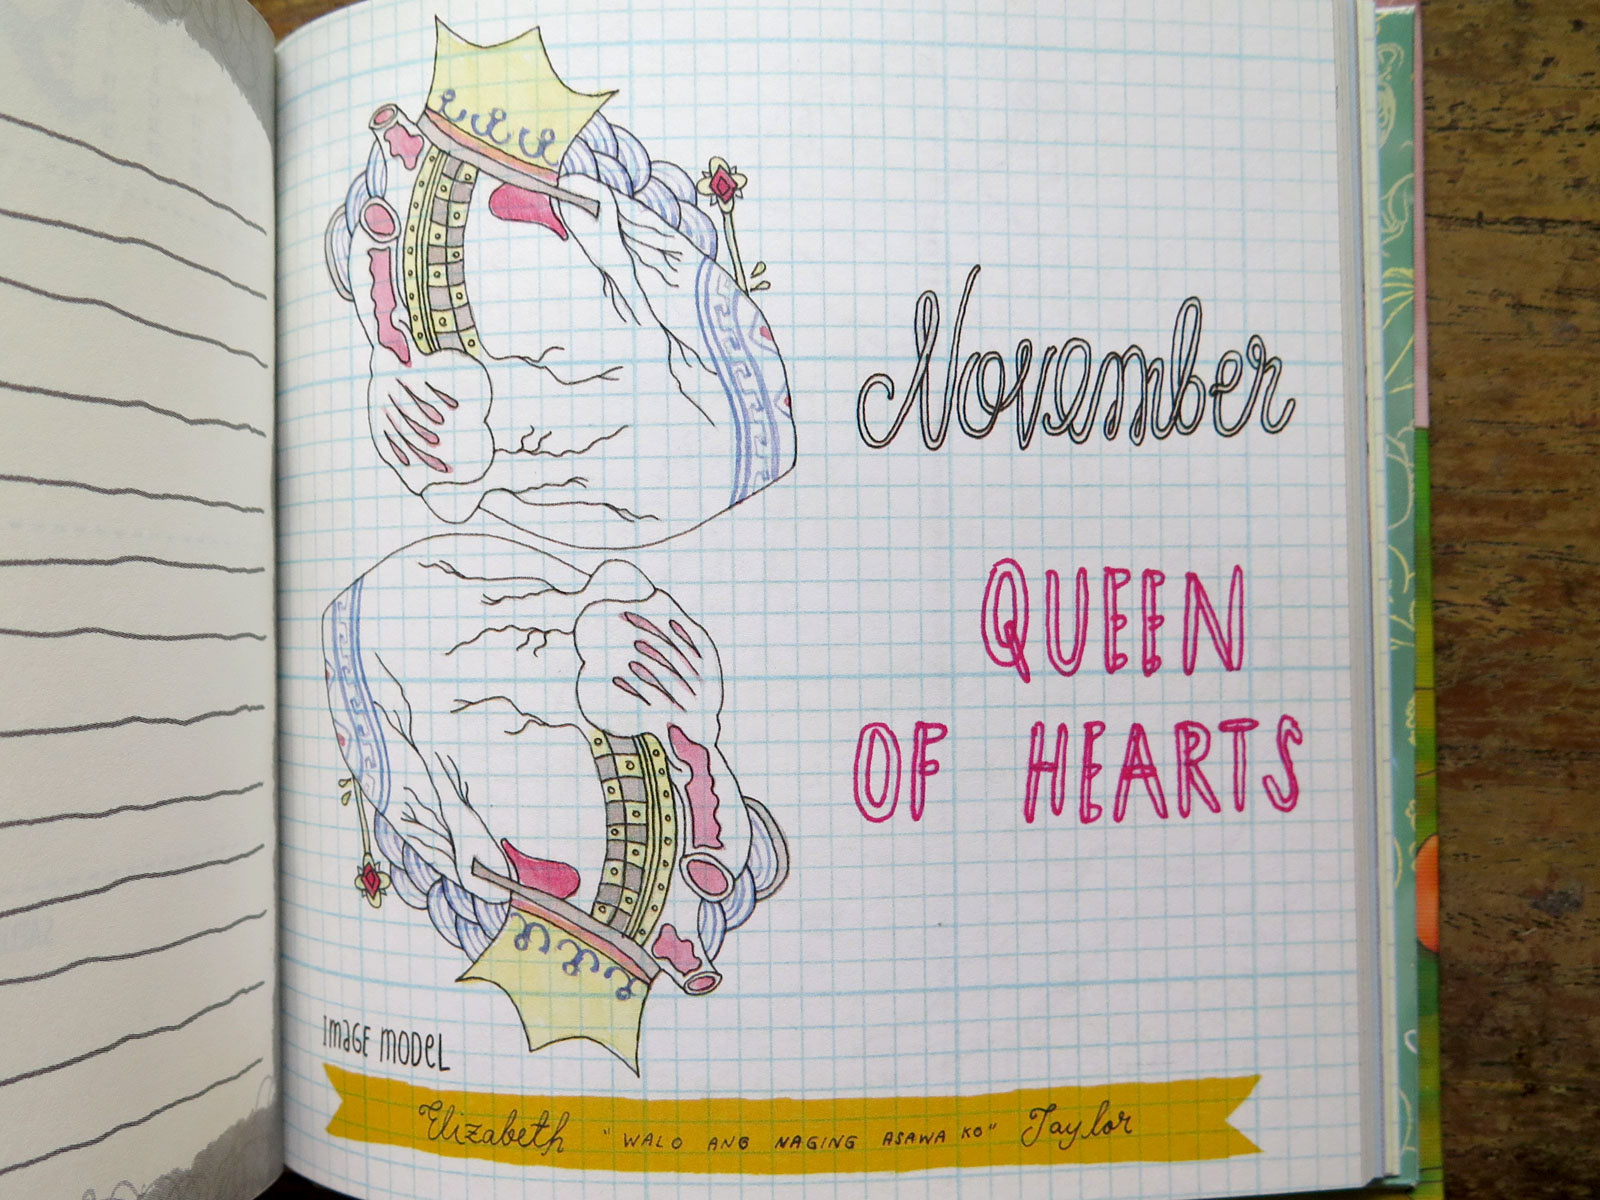 November
QUEEN
OF HEARTS
IMAGE MODEL
Elizabeth "WALO ANG NAGING ASAWA KO" Taylor